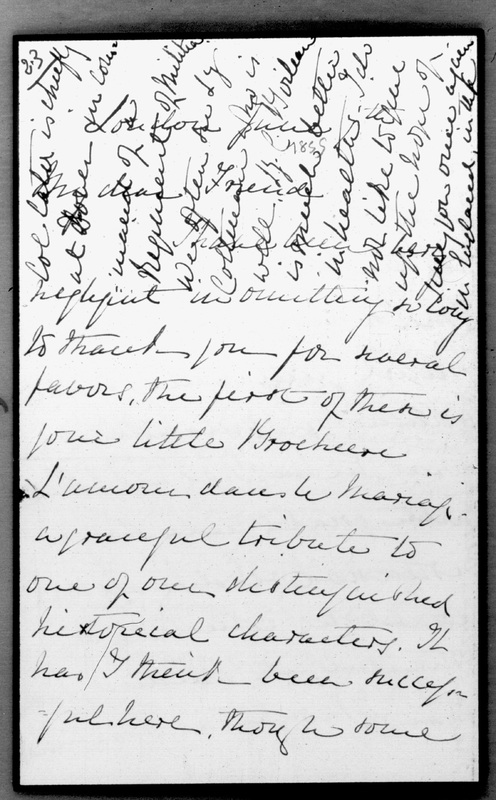 London June
1855
My dear Friend
I have been very
negligent in omitting so long
to thank you for several
favors, the first of these is
your little Brocheere
L'amour dans le Mariage
a graceful tribute to
one of our distinguished
historical characters. It
has, I think been success-
-ful here, though some
23
Col is chiefly
at Dover in com
mand of
Regiment of Militia
We often see Ly
Coleman Jno is
well
is much better
in health. I do
not like to give
up the hope of
see you once again
in England, in the